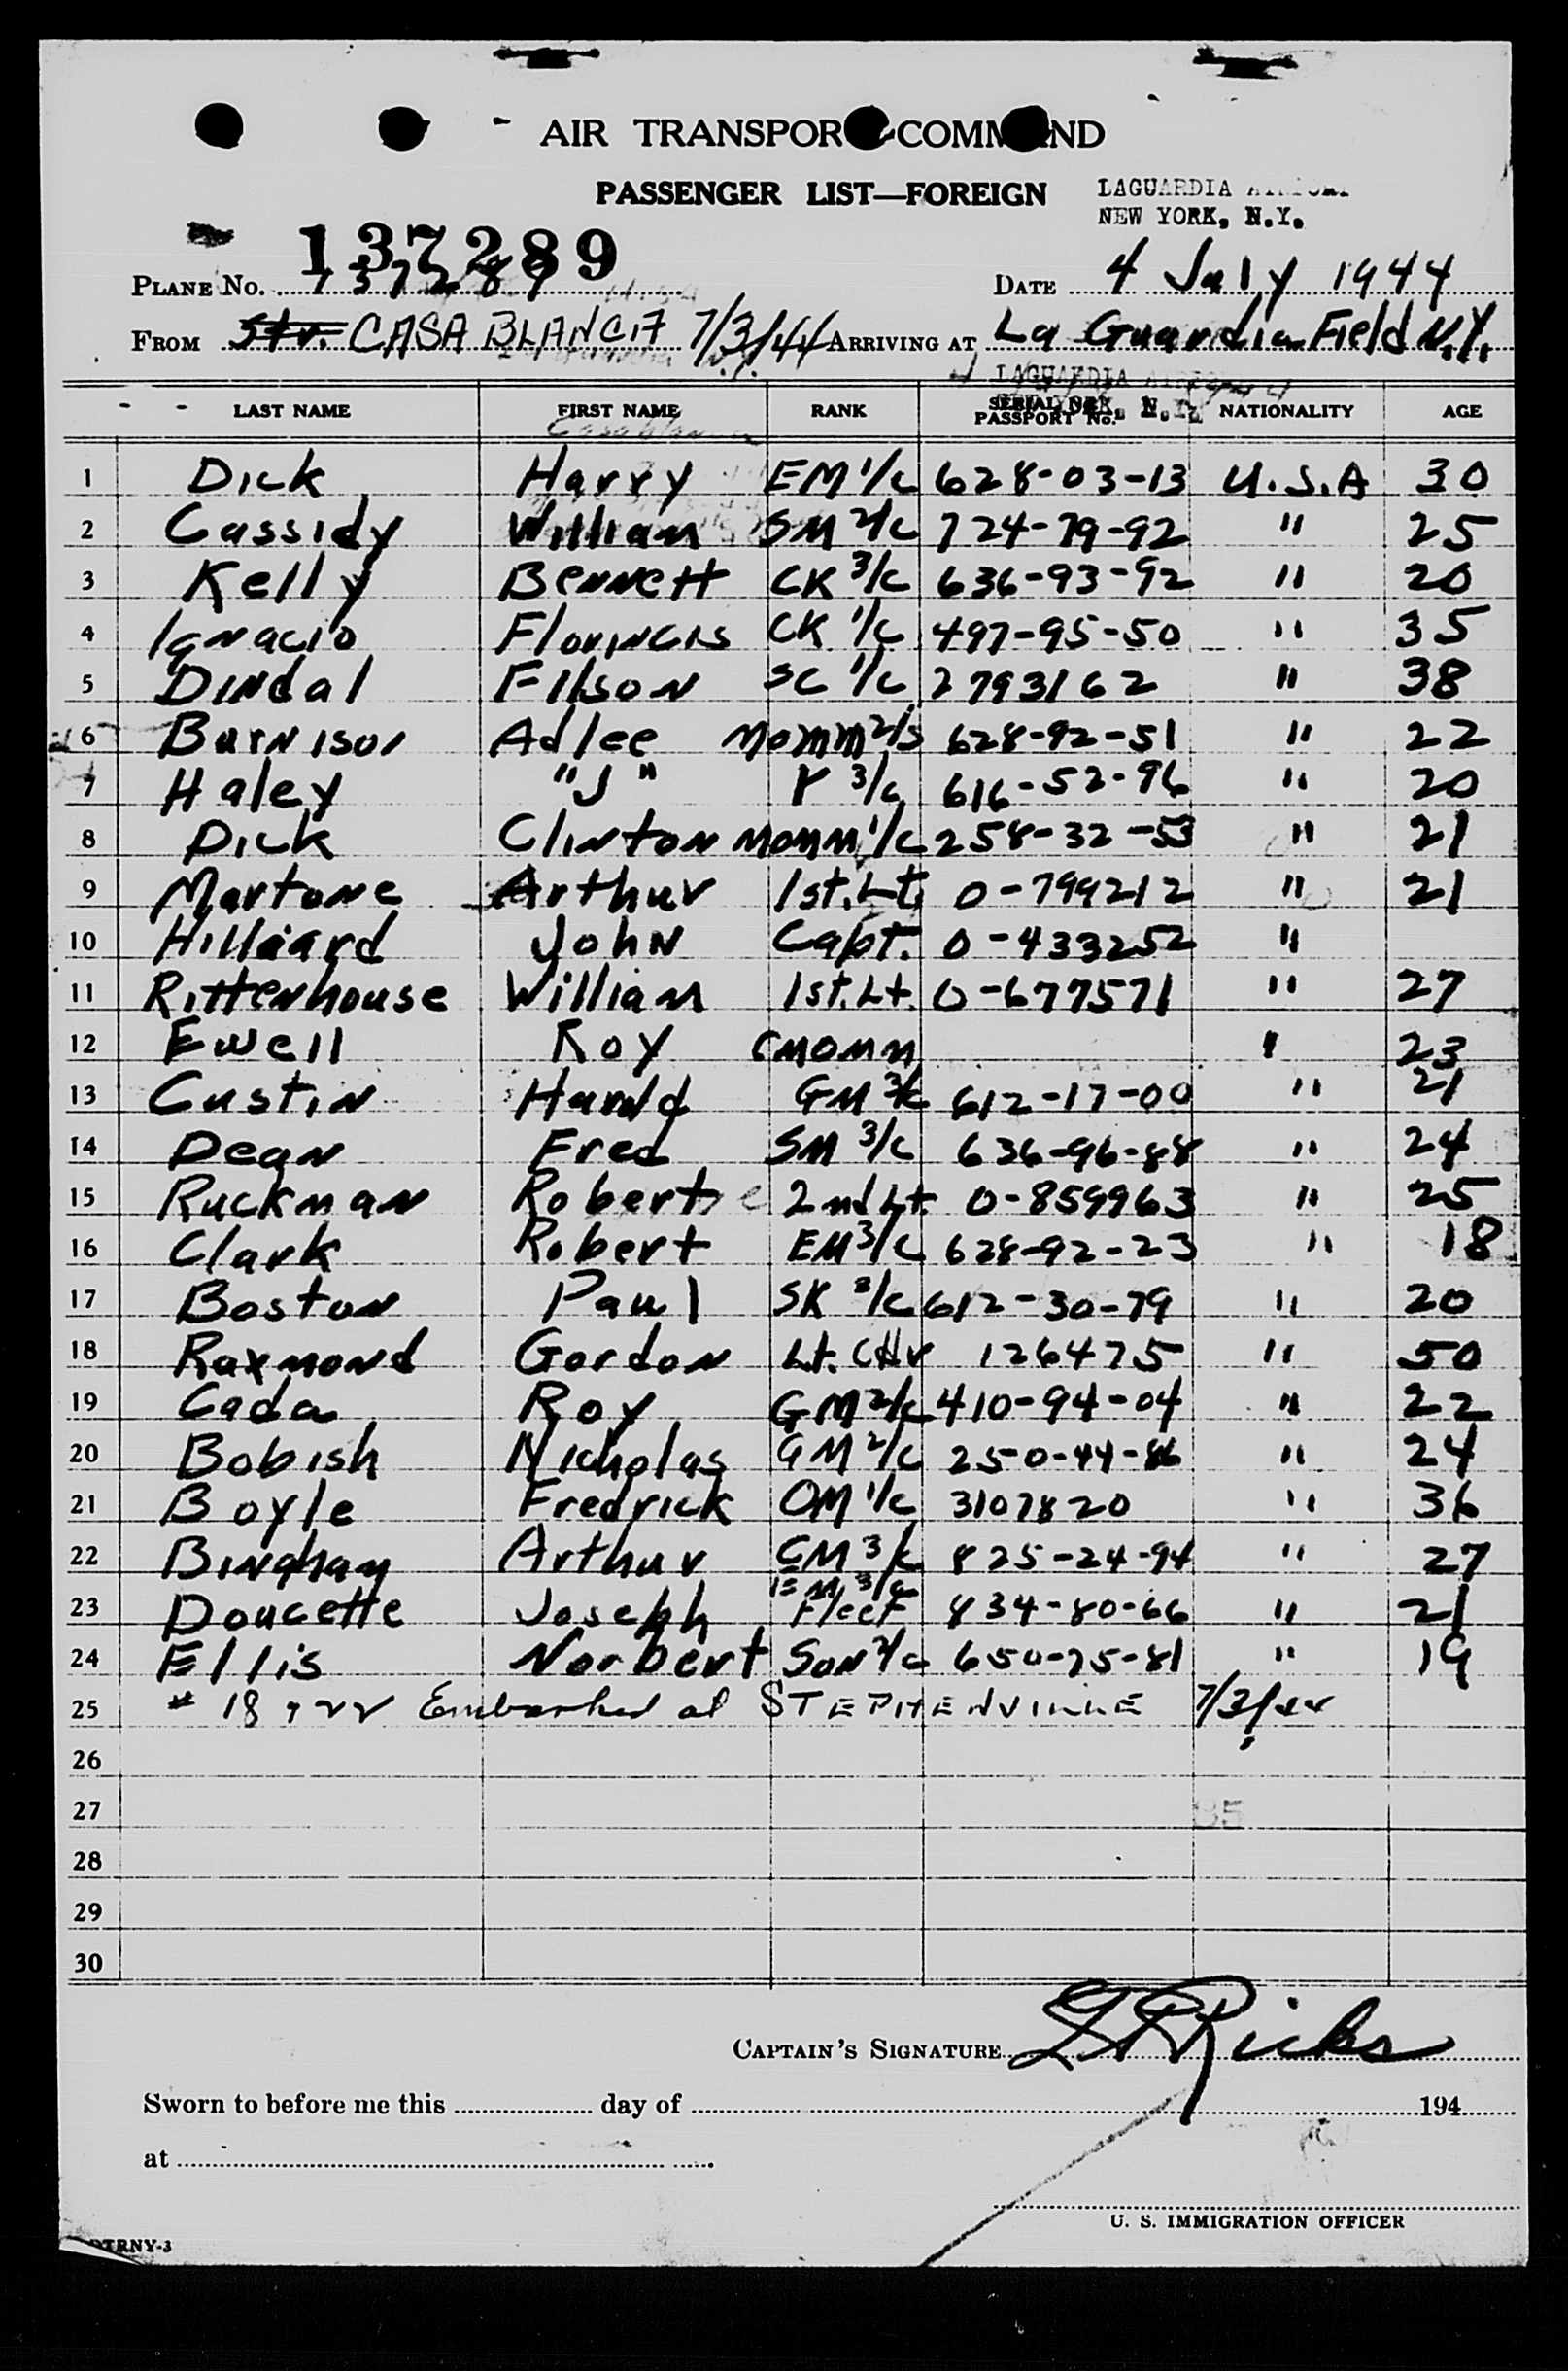 AIR TRANSPORT COMMAND
PASSENGER LIST—FOREIGN
LAGUARDIA
NEW YORK, N.Y.
137289
PLANE No. 137289
DATE 4 July 1944
FROM Stv. CASABLANCA 7/3/44 ARRIVING AT La Guardia Field N.Y.
LAGUARDIA
LAST NAME FIRST NAME RANK SERIAL PASSPORT No. NATIONALITY AGE
Casablanca
1 Dick Harry EM 1/c 628-03-13 U.S.A 30
2 Cassidy William SM 2/c 724-79-92 " 25
3 Kelly Bennett CK 3/c 636-93-92 " 20
4 Ignacio CK 1/c 497-95-50 " 35
5 Dindal Filson SC 1/c 2793162 " 38
6 Burnison Adlee MOMM 2/c 628-92-51 " 22
7 Haley "J" Y 3/c 616-52-96 " 20
8 Dick Clinton MOMM 1/c 258-32-53 " 21
9 Martone Arthur 1st. Lt. 0-799212 " 21
10 Hilliard John Capt. 0-433252 "
11 Rittenhouse William 1st. Lt. 0-677571 " 27
12 Ewell Roy CMOMM " 23
13 Custin Harold GM 3/c 612-17-00 " 21
14 Dean Fred SM 3/c 636-96-88 " 24
15 Ruckman Robert 2nd Lt. 0-859963 " 25
16 Clark Robert EM 3/c 628-92-23 " 18
17 Boston Paul SK 2/c 612-30-79 " 20
18 Raxmond Gordon Lt. 126475 " 50
19 Cada Roy GM 2/c 410-94-04 " 22
20 Bobish Nicholas GM 2/c 250-44-86 " 24
21 Boyle Fredrick OM 1/c 3107820 " 36
22 Bingham Arthur GM 3/c 825-24-94 " 27
EM 3/c
23 Doucette Joseph Fleet 834-80-66 " 21
24 Ellis Norbert Son 2/c 650-75-81 " 19
25 * 18 + 22 Embarked at STEPHENVILLE 7/3/44
26
27
28
29
30
CAPTAIN'S SIGNATURE Ricks
Sworn to before me this day of 194
at
U. S. IMMIGRATION OFFICER
TRNY-3